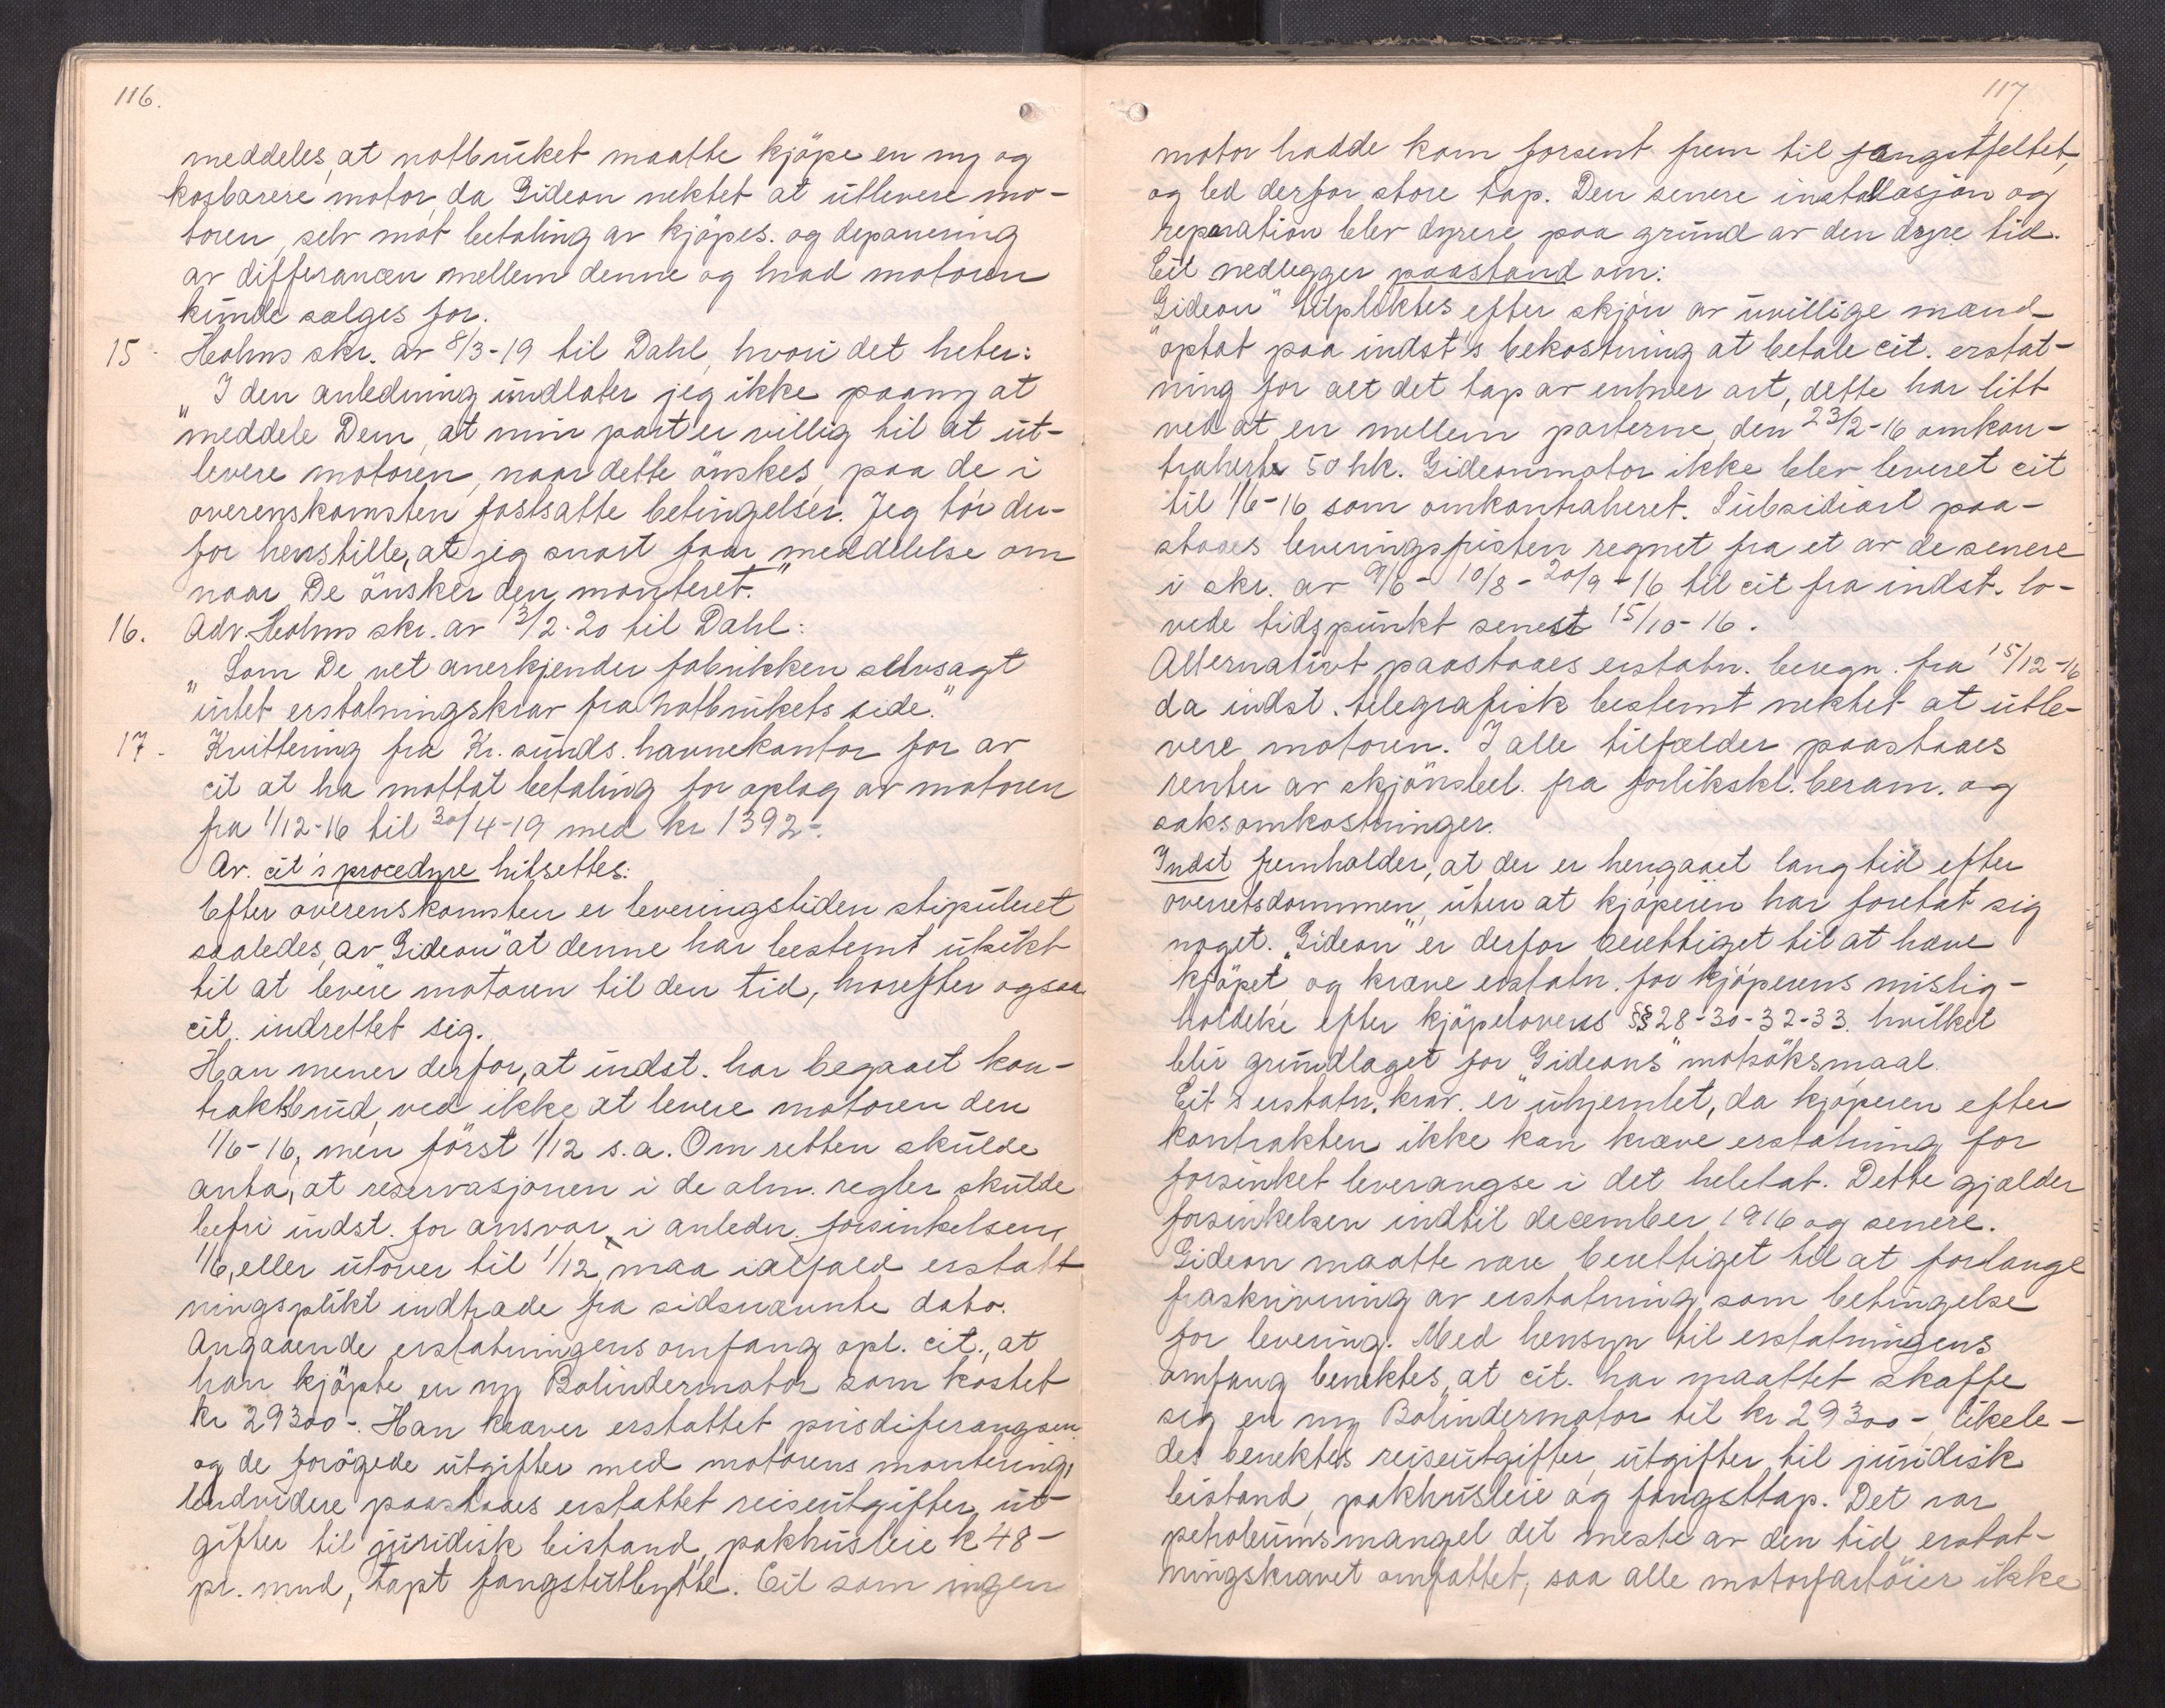 116.
meddeles, at notbruket maatte kjöpe en ny og
kosbarere motor, da Gideon nektet at utlevere mo-
toren, selv mot betaling av kjöpes. og deponering
av differancen mellem denne og hvad motoren
kunde sælges for.
15 Holms skr. av 8/3-19 til Dahl, hvori det heter:
"I den anledning undlater jeg ikke paany at
meddele Dem, at min part er villig til at ut-
levere motoren, naar dette önskes, paa de i
overenskomsten fastsatte betingelser. Jeg tör der-
for henstille, at jeg snart faar meddelelse om
naar De önsker den monteret."
16. Adv. Holms skr. av 13/2-20 til Dahl:
"Som De vet anerkjender fabrikken selvsagt
intet erstatningskrav fra notbrukets side."
17. Kvittering fra Kr.sunds havnekontor for av
cit at ha mottat betaling for oplag av motoren
fra 1/12-16 til 30/4-19 med kr 1392-.
Av. cit's procedyre hitsettes:
Efter overenskomsten er leveringstiden stipuleret
saaledes, av "Gideon" at denne har bestemt utsikt
til at levere motoren til den tid, hvorefter ogsaa
cit. indrettet sig.
Han mener derfor, at indst. har begaaet kon-
traktsbrud, ved ikke at levere motoren den
1/6-16, men först 1/12 s.a. Om retten skulde
anta, at reservasjonen i de alm. regler skulde
befri indst. for ansvar, i anledn. forsinkelsen,
1/6, eller utover til 1/12, maa ialfald erstatt
ningsplikt indtræde fra sidsnævnte dato.
Angaaende erstatningens omfang opl. cit., at
han kjöpte en ny Bolindermotor som kostet
kr 29300-. Han kræver erstattet prisdiferangsen
og de forögede utgifter med motorens montering,
Endvidere paastaaes erstattet reiseutgifter, ut-
gifter til juridisk bistand, pakhusleie k 48-
pr. mnd, tapt fangstutbytte. Cit som ingen
117
motor hadde kom forsent frem til fangstfeltet,
og led derfor store tap. Den senere installasjon og
reparation blev dyrere paa grund av den dyre tid.
Cit nedlegger paastand om:
"Gideon" tilpliktes efter skjön av uvillige mænd
optat paa indst's bekostning at betale cit. erstat-
ning for alt det tap av enhver art, dette har litt
ved at en mellem parterne, den 23/2-16 omkon-
traherte 50 hk. Gideonmotor ikke blev leveret cit
til 1/6-16 som omkontraheret. Subsidiært paa-
staaes leveringsfristen regnet fra et av de senere
i skr. av 9/6- 10/8- 20/9-16 til cit fra indst. lo-
vede tidspunkt senest 15/10-16.
Alternativt paastaaes erstatn. beregn. fra 15/12-16
da indst. telegrafisk bestemt nektet at utle-
vere motoren. I alle tilfælder paastaaes
renter av skjönsbel. fra forlikskl. beram. og
saksomkostninger.
Indst fremholder, at der er hengaaet lang tid efter
overretsdommen, uten at kjöperen har foretat sig
noget. "Gideon" er derfor berettiget til at hæve
kjöpet og kræve erstatn. for kjöperens mislig-
holdelse efter kjöpelovens §§ 28-30-32-33. hvilket
blir grundlaget for "Gideons" motsöksmaal.
Cit's erstatn. krav. er uhjemlet, da kjöperen efter
kontrakten ikke kan kræve erstatning for
forsinket leverangse i det heletat. Dette gjælder
forsinkelsen indtil december 1916 og senere.
Gideon maatte være berettiget til at forlange
fraskrivning av erstatning, som betingelse
for levering. Med hensyn til erstatningens
omfang benektes, at cit. har maattet skaffe
sig en ny Bolindermotor til kr 29300-, likele-
des benektes reiseutgifter, utgifter til juridisk
bistand, pakhusleie og fangsttap. Det var
petroleumsmangel det meste av den tid erstat-
ningskravet omfattet, saa alle motorfartöier ikke